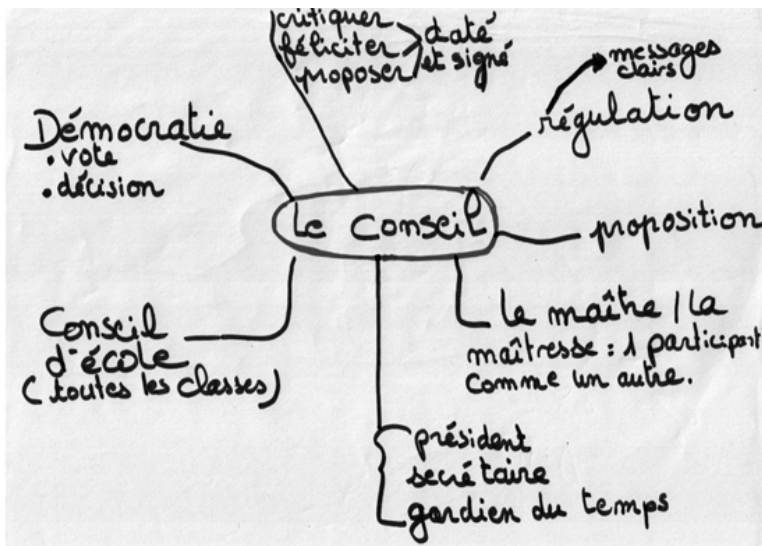 critiquer
féliciter
proposer
daté
et signé
messages
clairs
régulation
Démocratie
• vote
• décision
Le conseil
proposition
Conseil
d'école
(toutes les classes)
Le maître / La
maîtresse : 1 participant
comme un autre.
président
secrétaire
gardien du temps